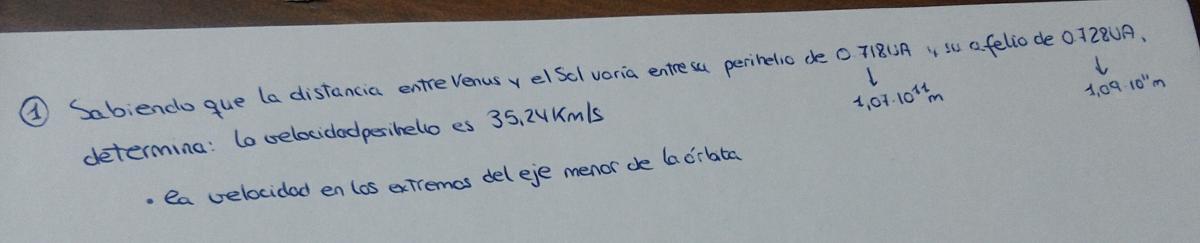 ① Sabiendo que la distancia entre Venus y el Sol varía entre su perihelio de 0.718UA y su afelio de 0.728UA,
↓ ↓
1,07·10¹¹m 1,09·10¹¹m
determina: la velocidad perihelio es 35,24Km/s
• la velocidad en los extremos del eje menor de la órbita